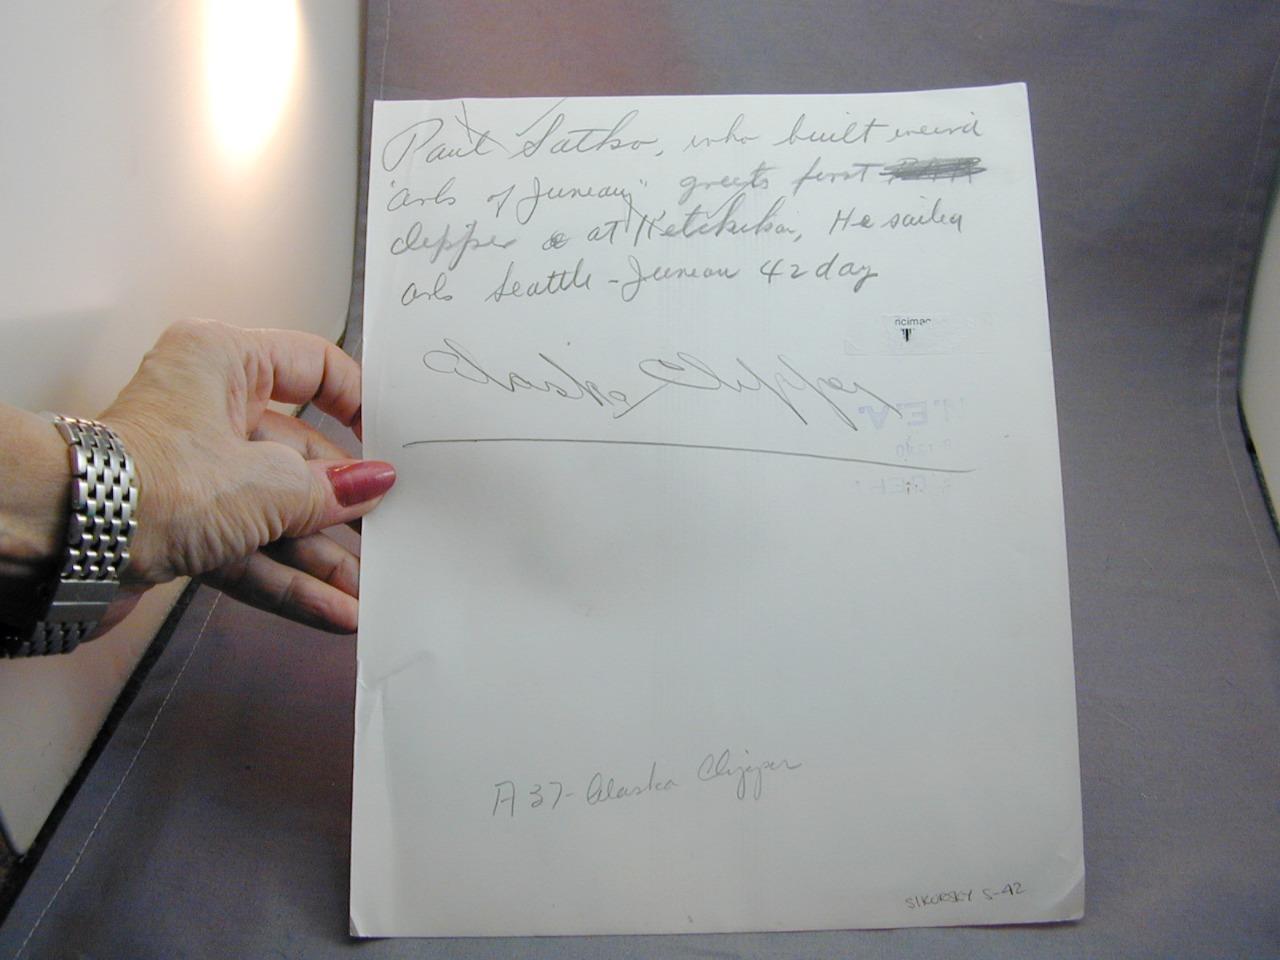 Paul Satko, who built weird
"Ark of Juneau," greets first
clipper at Ketchikan, He sailed
ark Seattle - Juneau 42 day
Alaska Clipper
N.E.A.
A 37 - Alaska Clipper
SIKORSKY S-42